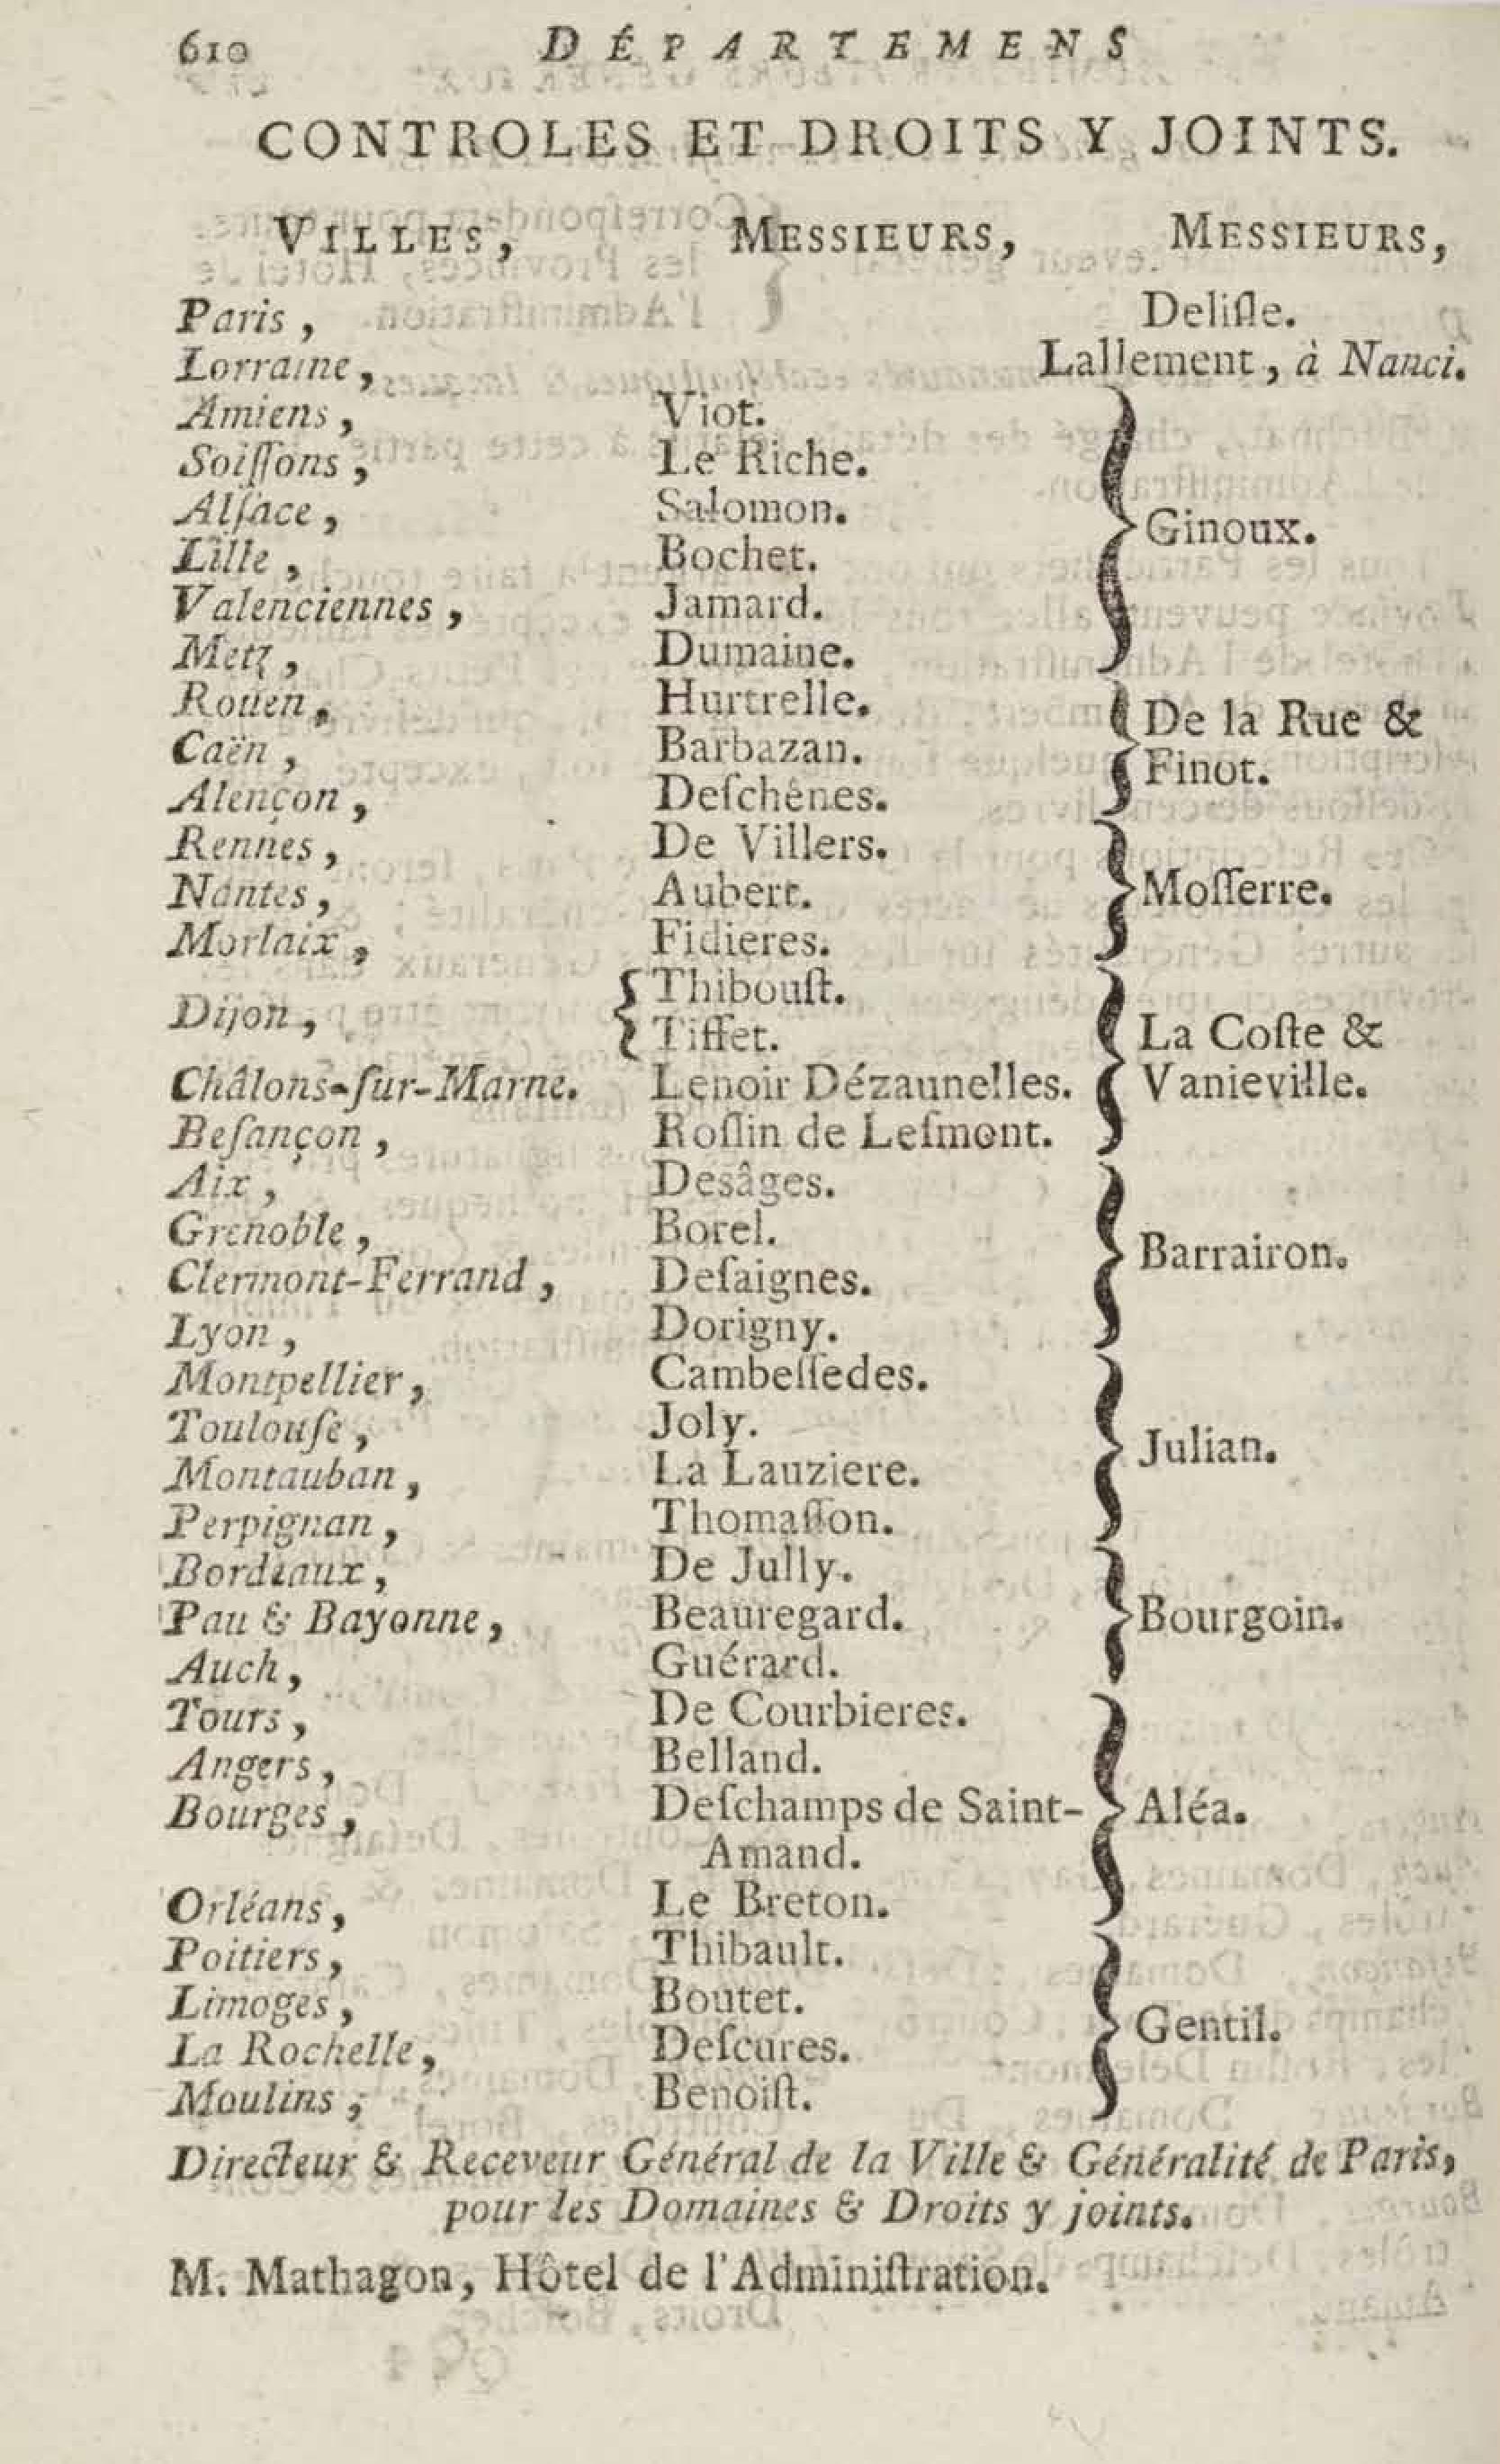 610 DÉPARTEMENS
CONTROLES ET DROITS Y JOINTS.
VILLES, MESSIEURS, MESSIEURS,
Paris, Deliſle.
Lorraine, Lallement, à Nanci.
Amiens, Viot.
Soiſſons, Le Riche.
Alſace, Salomon.
Ginoux.
Lille, Bochet.
Valenciennes, Jamard.
Metz, Dumaine.
Rouen, Hurtrelle. De la Rue &
Caën, Barbazan. Finot.
Alençon, Deſchênes.
Rennes, De Villers.
Nantes, Aubert. Moſſerre.
Morlaix, Fidieres.
Thibouſt.
Dijon, La Coſte &
Tiffet.
Châlons-ſur-Marne. Lenoir Dézaunelles. Vanieville.
Beſançon, Roſlin de Leſmont.
Aix, Desâges.
Grenoble, Borel. Barrairon.
Clermont-Ferrand, Deſaignes.
Lyon, Dorigny.
Montpellier, Cambeſſedes.
Toulouſe, Joly. Julian.
Montauban, La Lauziere.
Perpignan, Thomaſſon.
Bordeaux, De Jully.
Pau & Bayonne, Beauregard. Bourgoin.
Auch, Guérard.
Tours, De Courbieres.
Angers, Belland.
Bourges, Deſchamps de Saint- Aléa.
Amand.
Orléans, Le Breton.
Poitiers, Thibault.
Limoges, Boutet. Gentil.
La Rochelle, Deſcures.
Moulins, Benoiſt.
Directeur & Receveur Général de la Ville & Généralité de Paris,
pour les Domaines & Droits y joints.
M. Mathagon, Hôtel de l'Adminiſtration.